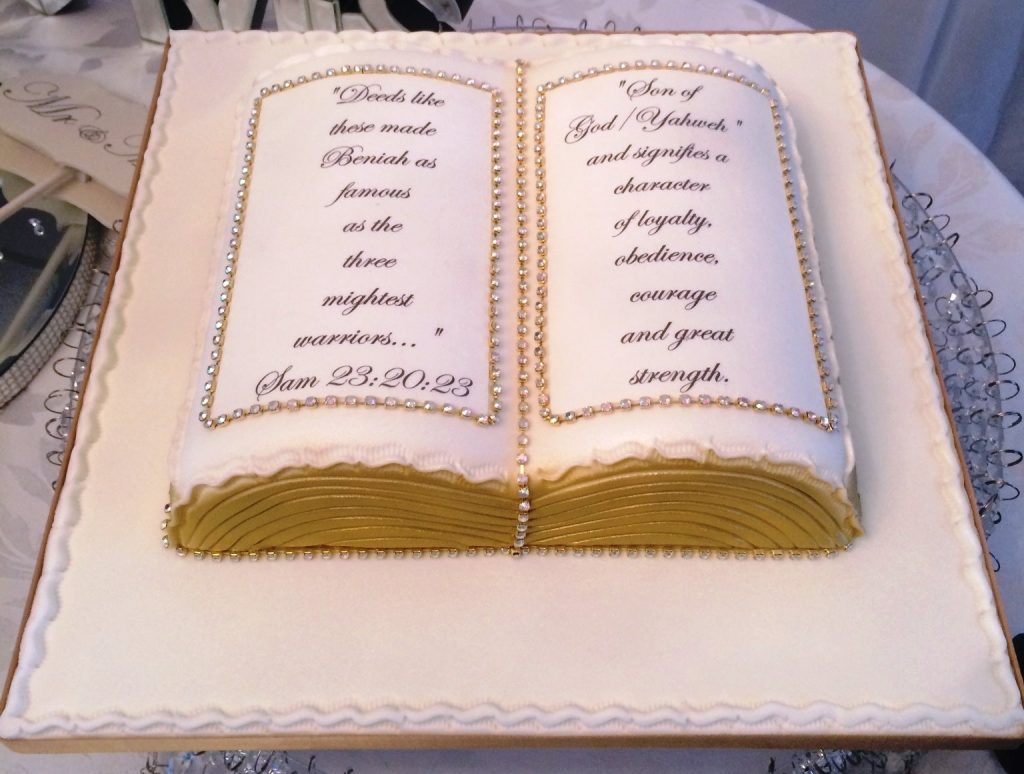 Mr &
"Deeds like
these made
Beniah as
famous
as the
three
mightest
warriors... "
Sam 23:20:23
"Son of
God / Yahweh "
and signifies a
character
of loyalty,
obedience,
courage
and great
strength.